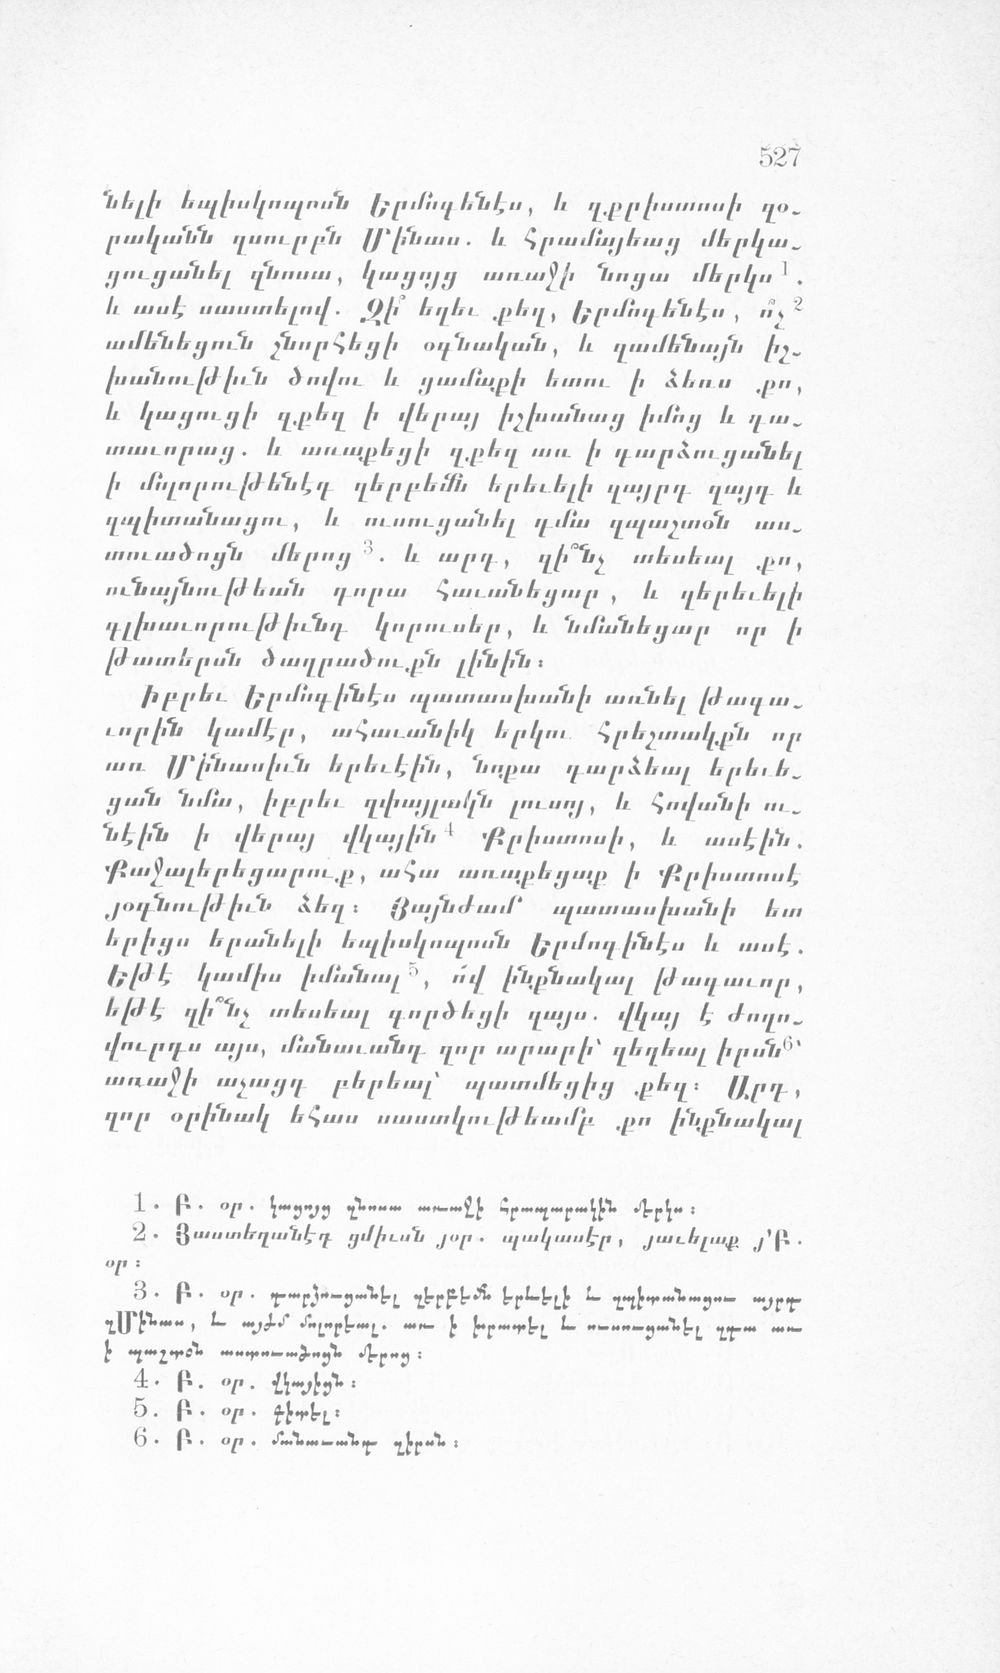 527
նելի եպիսկոպոսն Երմոգենէս, և զքրիստոսի զօ֊
րականն զսուրբն Մինաս. և հրամայեաց մերկա֊
ցուցանել զնոսա, կացոյց առաջի նոցա մերկս 1.
և ասէ սաստելով. Զի՞ եղեւ քեզ, Երմոգենէս, ո՞չ 2
ամենեցուն շնորհեցի օգնական, և զամենայն իշ֊
խանութիւն ծովու և ցամաքի ետու ի ձեռս քո,
և կացուցի զքեզ ի վերայ իշխանաց իմոց և դա֊
տաւորաց. և առաքեցի զքեզ առ ի դարձուցանել
ի մոլորութենէդ զերբեմն երեւելի զայրդ զայդ և
զպիտանացու, և ուսուցանել դմա զպաշտօն աս֊
տուածոցն մերոց 3. և արդ, զի՞նչ տեսեալ քո,
ունայնութեան դորա հաւանեցար, և զերեւելի
գլխաւորութիւնդ կորուսեր, և նմանեցար որ ի
թատերսն ծաղրածուքն լինին։
Իբրեւ Երմոգինէս պատասխանի առնել թագա֊
ւորին կամէր, ահաւանիկ երկու հրեշտակքն որ
առ Մինասիւն երեւէին, նոքա դարձեալ երեւե֊
ցան նմա, իբրեւ զփայլակն լուսոյ, և հովանի ու֊
նէին ի վերայ վկային 4 Քրիստոսի, և ասէին.
Քաջալերեցարուք, ահա առաքեցաք ի Քրիստոսէ
յօգնութիւն ձեզ։ Յայնժամ պատասխանի ետ
երիցս երանելի եպիսկոպոսն Երմոգինէս և ասէ.
Եթէ կամիս իմանալ 5, ո՛վ ինքնակալ թագաւոր,
եթէ զի՞նչ տեսեալ գործեցի զայս. վկայ է ժողո֊
վուրդս այս, մանաւանդ զոր արարի՝ զեղեալ իրսն 6՝
առաջի աչացդ բերեալ՝ պատմեցից քեզ։ Արդ,
զոր օրինակ եհաս սաստկութեամբ քո ինքնակալ
1. Բ. օր. կացոյց զնոսա առաջի հրապարակին մերկս։
2. Յաստեղանէդ ցմիւսն յօր. պակասէր, յաւելաք յ՚Բ.
օր։
3. Բ. օր. դարձուցանել զերբեմն երևելի և զպիտանացու այրդ
զՄինաս, և այժմ մոլորեալ. առ ի խրատել և ուսուցանել զդա առ
ի պաշտօն աստուածոցն մերոց։
4. Բ. օր. վկայիցն։
5. Բ. օր. գիտել։
6. Բ. օր. մանաւանդ զիրսն։